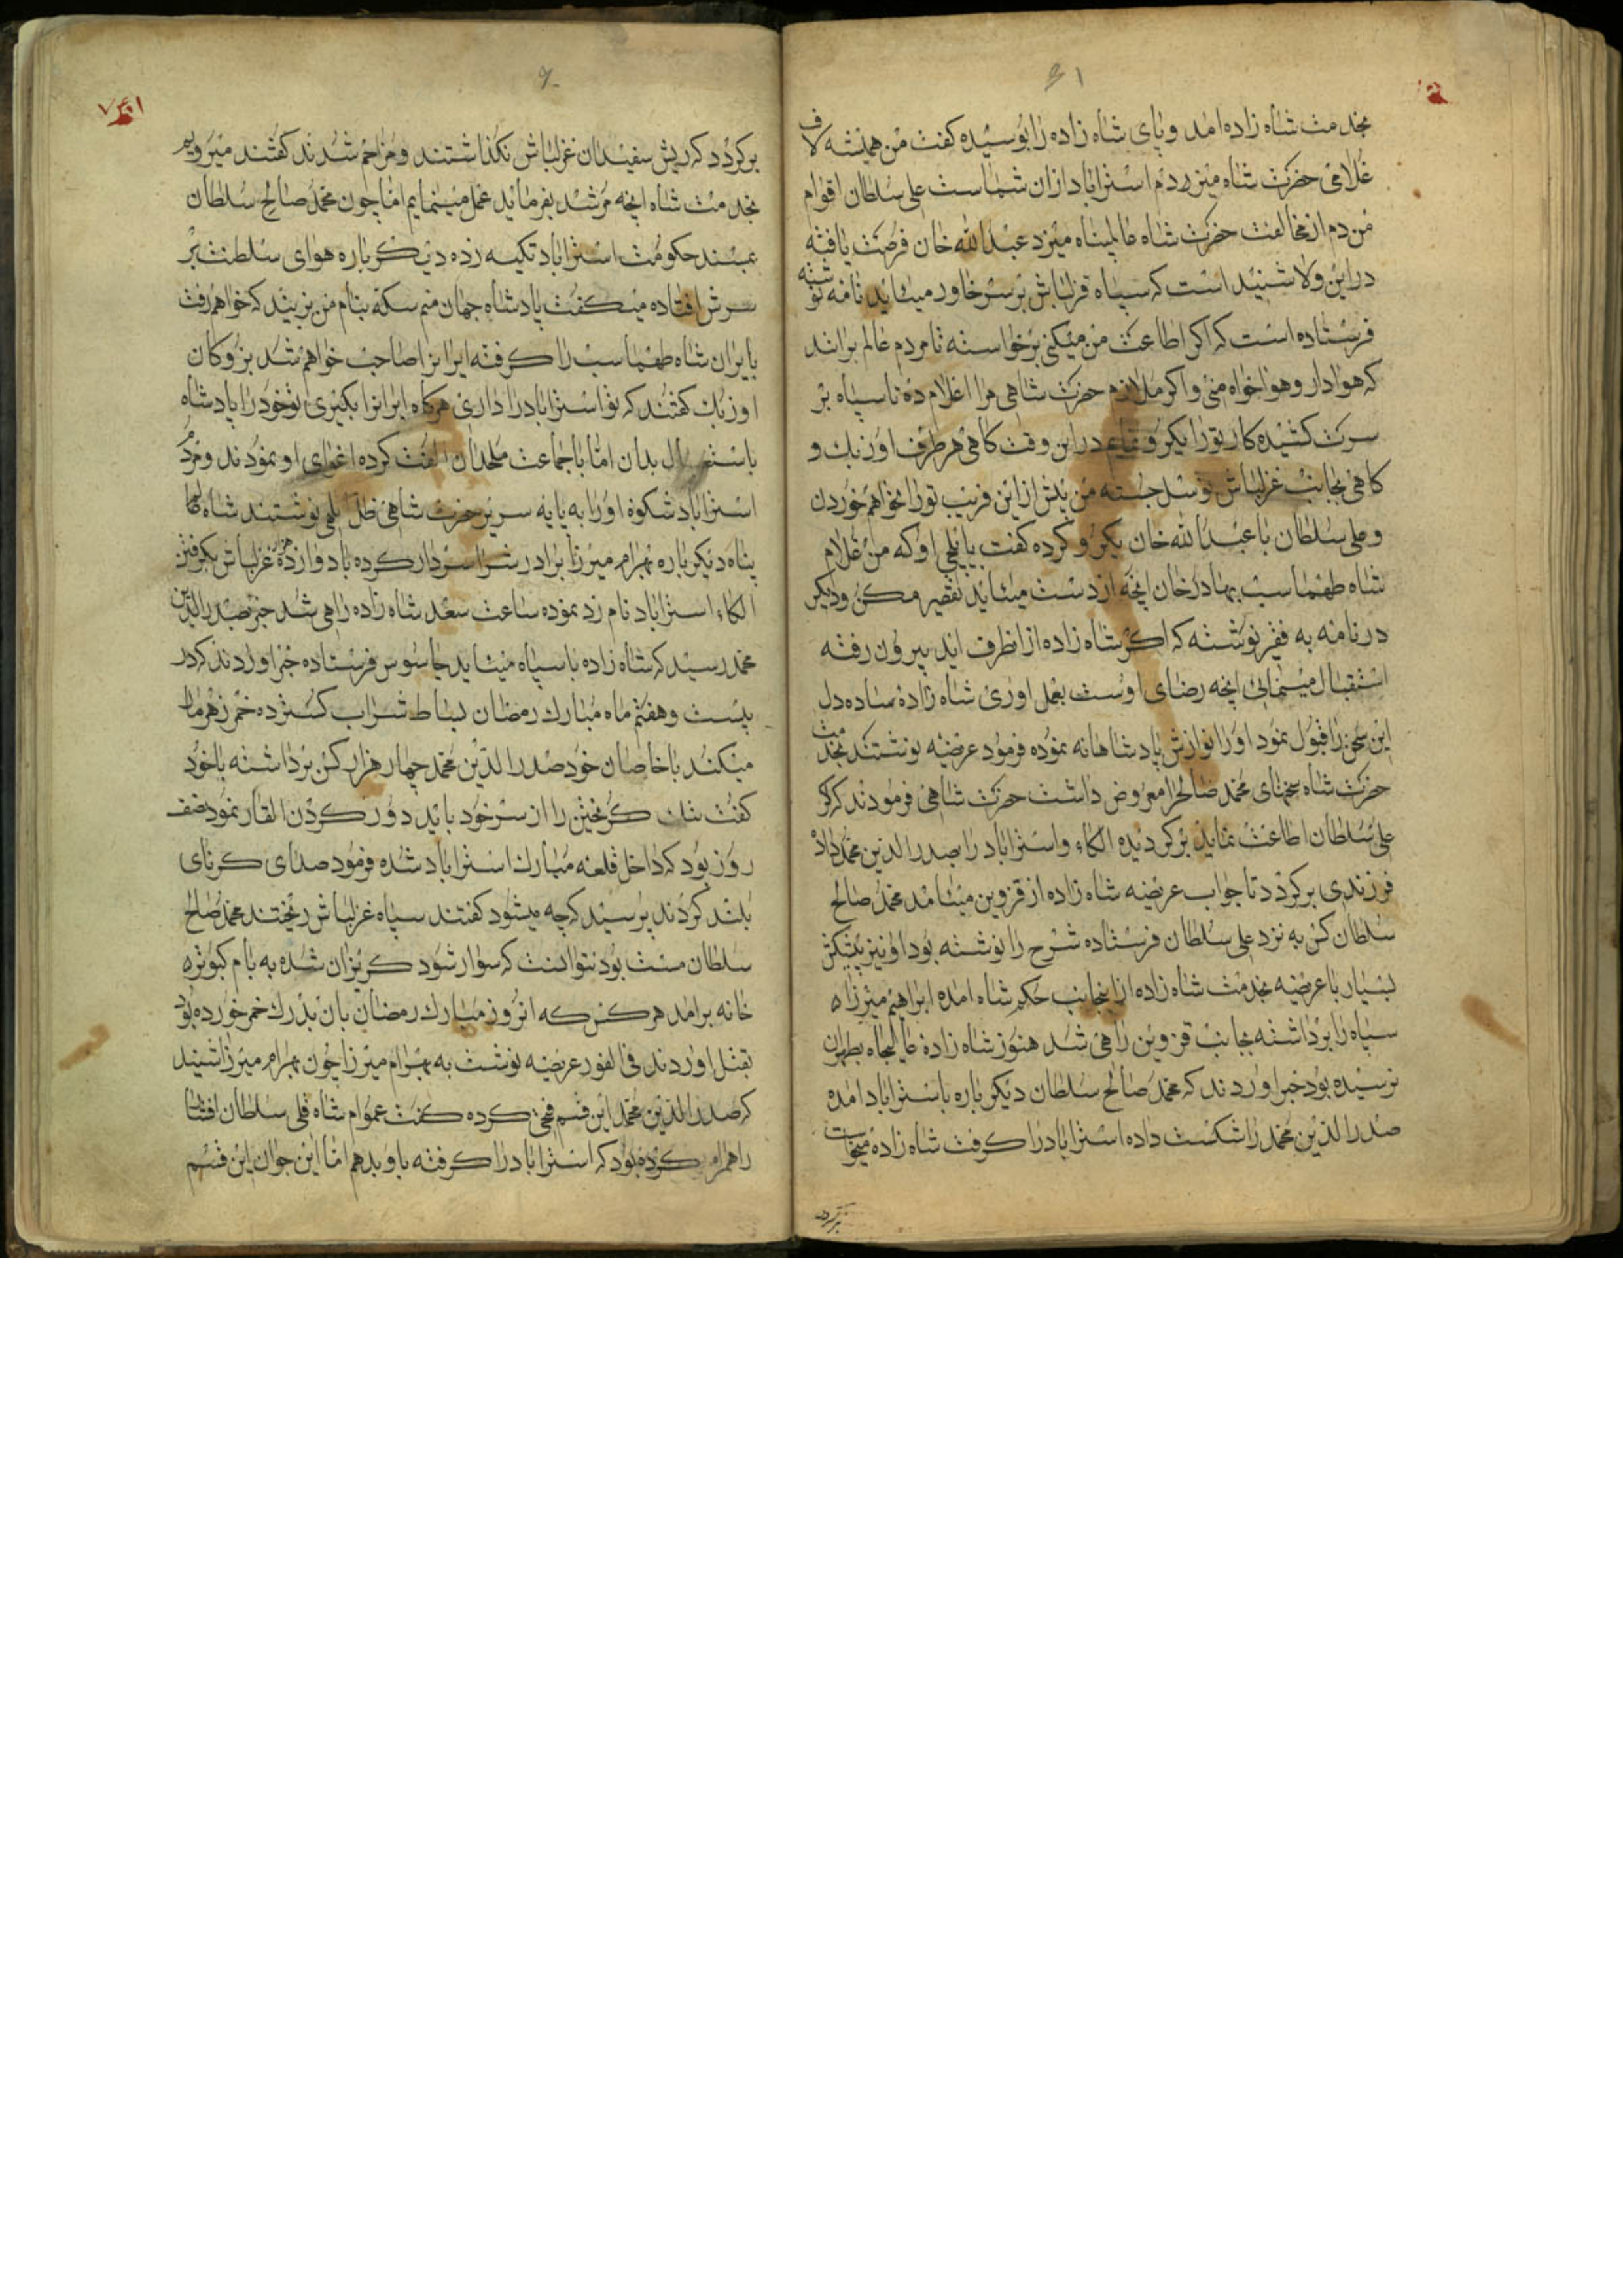 بخدمت شاه زاده امد و پای شاه زاده را بوسیده کفت من همیشه لاف
غلامی حضرت شاه میزدم استراباد ازان شماست علی سلطان اقوام
من دم از مخالفت حضرت شاه عالمپناه میزد عبدالله خان فرصت یافته
دراین ولا شنید است که سپاه قزلباش بر سر خاور میاید نامه نوشته
فرستاده است که اکر اطاعت من میکنی برخواسته تا مردم عالم برانند
که هوادار و هواخواه منی و اکر ملازم حضرت شاهی مرا اعلام ده تا سپاه بر
سرت کشیده کار تورا یکرو نمایم دراین وقت کاهی هر طرف اوزبك و
کاهی بجانب غزلباش توسل جسته من بیش ازاین فریب تورا نخواهم خوردن
و علی سلطان با عبدالله خان یکرو کرده کفت بایلچی او که من غلام
شاه طهماسب بهادرخان انچه از دست میاید تقصیر مکن و دیکر
در نامه به فقیر نوشته که اکر شاه زاده ازانطرف اید بیرون رفته
استقبال مینمائی انچه رضای اوست بعمل اوری شاه زاده ساده دل
این سخن را قبول نمود اورا نوازش پادشاهانه نموده فرمود عریضه نوشتند بخدمت
حضرت شاه سخنهای محمد صالح را معروض داشت حضرت شاهی فرمودند که اکر
علی سلطان اطاعت نماید برکردیده الکاء و استراباد را بصدرالدین محمد داده
فرزندی برکردد تا جواب عریضه شاه زاده از قزوین میامد محمد صالح
سلطان کس به نزد علی سلطان فرستاده شرح را نوشته بود او نیز پیشکش
بسیار با عریضه بخدمت شاه زاده ازاینجانب حکم شاه امده ابراهیم میرزا
سپاه را برداشته بجانب قزوین راهی شد هنوز شاه زاده عالیجاه بطهران
نرسیده بود خبر اوردند که محمد صالح سلطان دیکر باره باستراباد امده
صدرالدین محمد را شکست داده استراباد را کرفت شاه زاده میخواست
برکردد که ریش سفیدان غزلباش نکذاشتند و مزاحم شدند کفتند میرویم
بخدمت شاه انچه مرشد بفرماید عمل مینمایم اما چون محمد صالح سلطان
بمسند حکومت استراباد تکیه زده دیکر باره هوای سلطنت بر
سرش افتاده میکفت پادشاه جهان منم سکه بنام من بزنید که خواهم رفت
بایران شاه طهماسب را کرفته ایرانرا صاحب خواهم شد بزرکان
اوزبك کفتند که تو استراباد را داری هرکاه ایرانرا بکیری تو خودرا پادشاه
باستقلال بدان اما باجماعت ملحدان الفت کرده اغرای او نمودند و مردم
استراباد شکوه اورا به پایه سریر حضرت شاهی ظل الهی نوشتند شاه عالم
پناه دیکر باره بهرام میرزا برادرش را سردار کرده با دوازده هزار غزلباش بکرفتن
الکاء استراباد نام زد نموده ساعت سعد شاه زاده راهی شد خبر بصدرالدین
محمد رسید که شاه زاده با سپاه میاید جاسوس فرستاده خبر اوردند که در
بیست و هفتم ماه مبارك رمضان بساط شراب کسترده خمر زهرمار
میکند باخاصان خود صدرالدین محمد چهار هزار کس برداشته باخود
کفت ننك کریختن را از سر خود باید دور کردن القار نمود نصف
روز بود که داخل قلعه مبارك استراباد شده فرمود صدای کرنای
بلند کردند پرسید که چه میشود کفتند سپاه غزلباش ریختند محمد صالح
سلطان مست بود نتوانست که سوار شود کریزان شده به بام کبوتر
خانه برامد هرکس که انروز مبارك رمضان بان بدرك خمر خورده بود
بقتل اوردند فی الفور عریضه نوشت به بهرام میرزا چون بهرام میرزا شنید
که صدرالدین محمد این قسم فتحی کرده کفت عموام شاه قلی سلطان
را همراه کرده بود که استراباد را کرفته باو بدهم اما این جوان این قسم